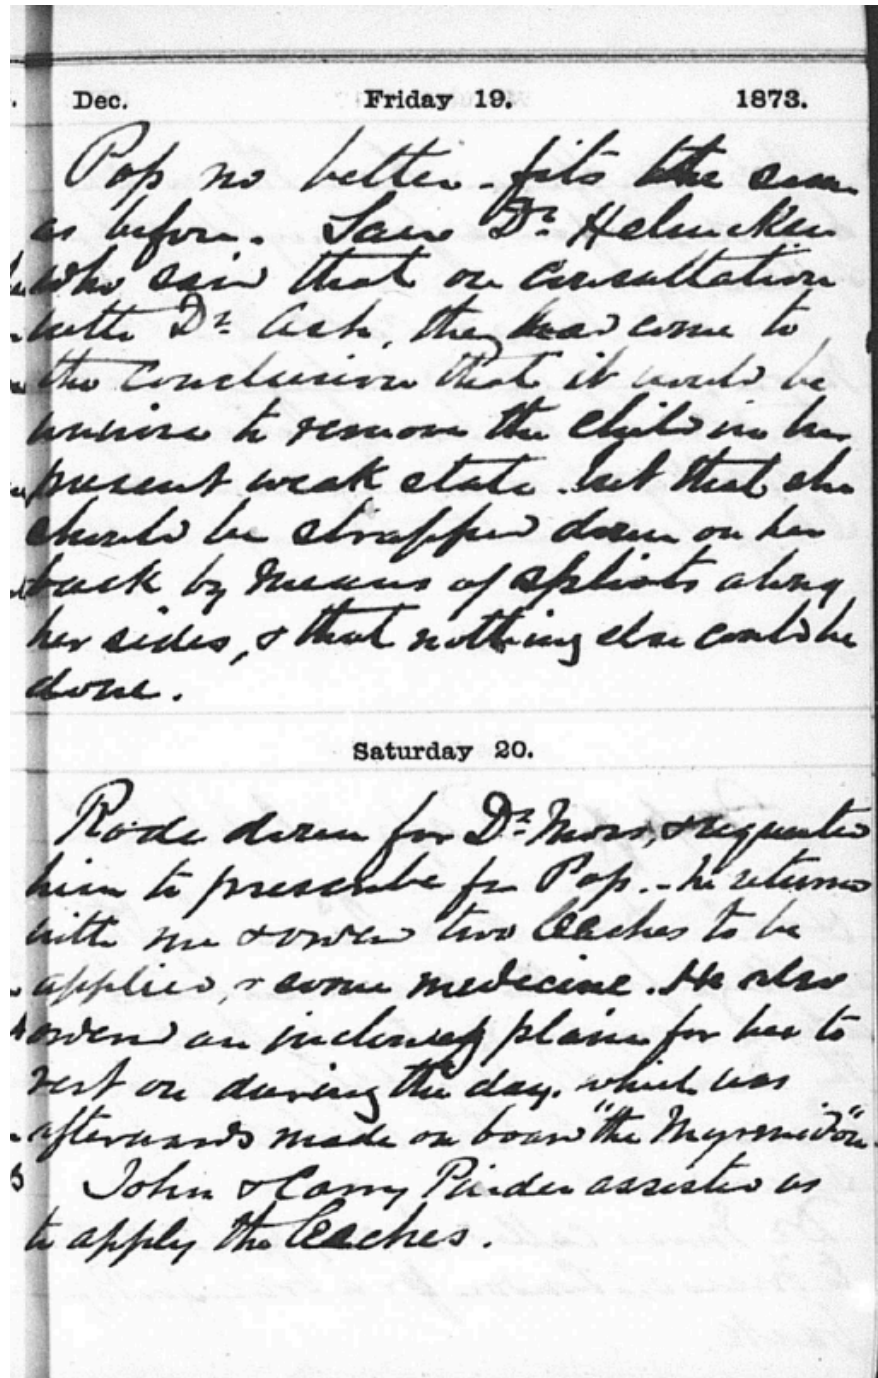 Dec. Friday 19. 1873.
Pop no better - fits the same
as before. Saw Dr. Helmcken
who said that on consultation
with Dr. Ash, they had come to
the conclusion that it would be
unwise to remove the child in her
present weak state. but that she
should be strapped down on her
back by means of splints along
her sides, & that nothing else could be
done.
Saturday 20.
Rode down for Dr. & requested
him to prescribe for Pop. - he returned
with me & ordered two leaches to be
applied, & some medicine. He also
ordered an plain for her to
rest on during the day. which was
afterwards made on board "the Myrmidon"
John & Carry Pinder assisted us
to apply the leaches.